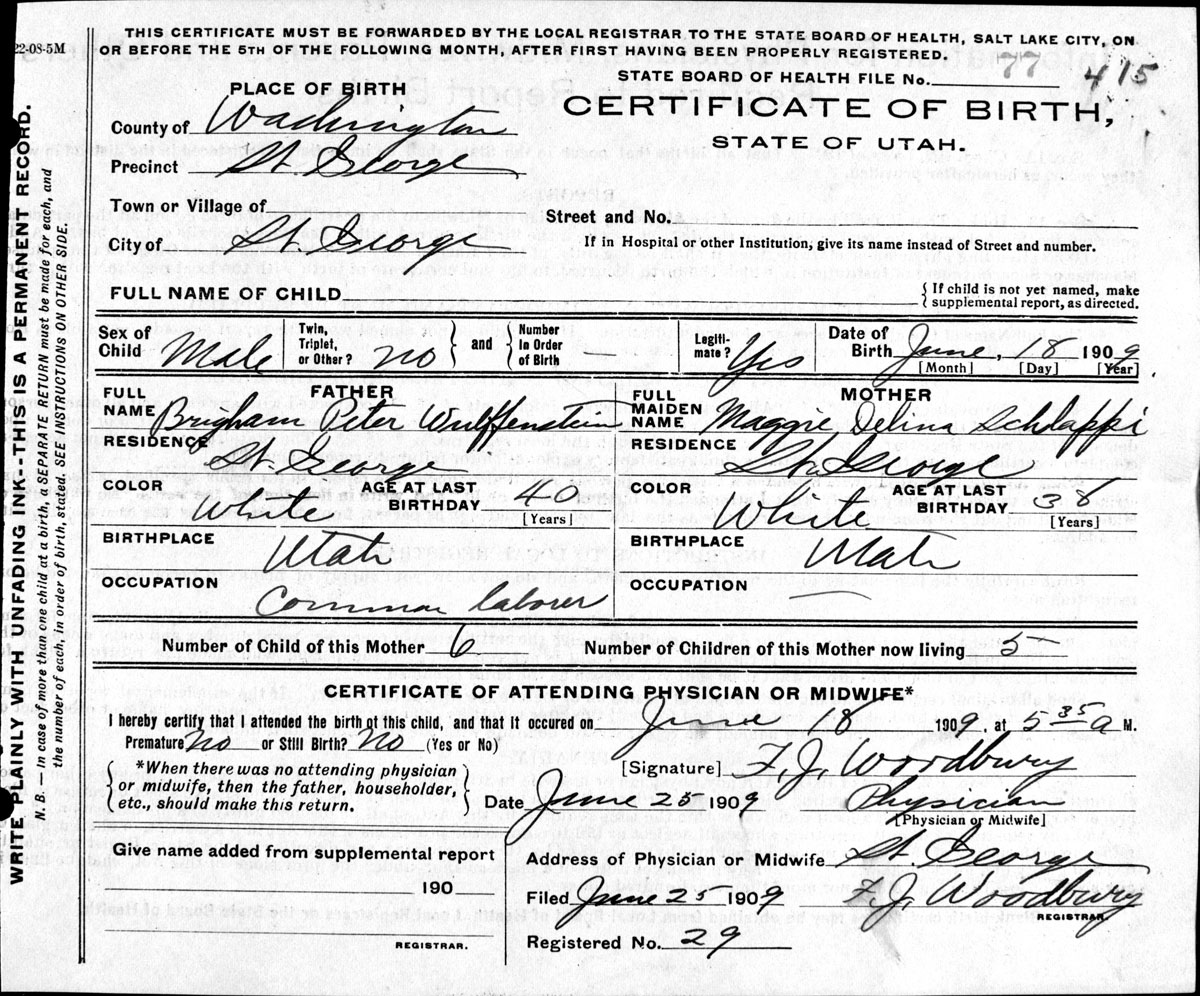 22-08-5M
THIS CERTIFICATE MUST BE FORWARDED BY THE LOCAL REGISTRAR TO THE STATE BOARD OF HEALTH, SALT LAKE CITY, ON
OR BEFORE THE 5TH OF THE FOLLOWING MONTH, AFTER FIRST HAVING BEEN PROPERLY REGISTERED.
STATE BOARD OF HEALTH FILE No. 77 415
PLACE OF BIRTH
CERTIFICATE OF BIRTH,
STATE OF UTAH.
County of Washington
Precinct St. George
Town or Village of
Street and No.
City of St. George
If in Hospital or other Institution, give its name instead of Street and number.
FULL NAME OF CHILD
{ If child is not yet named, make
supplemental report, as directed.
Sex of Child Male
Twin, Triplet, or Other? no } and { Number In Order of Birth —
Legiti-mate? Yes
Date of Birth June, 18 1909
[Month] [Day] [Year]
FATHER
FULL NAME Brigham Peter Wulffenstein
RESIDENCE St. George
COLOR White AGE AT LAST BIRTHDAY 40 [Years]
BIRTHPLACE Utah
OCCUPATION Common laborer
MOTHER
FULL MAIDEN NAME Maggie Delina Schlappi
RESIDENCE St. George
COLOR White AGE AT LAST BIRTHDAY 38 [Years]
BIRTHPLACE Utah
OCCUPATION —
Number of Child of this Mother 6 Number of Children of this Mother now living 5
CERTIFICATE OF ATTENDING PHYSICIAN OR MIDWIFE*
I hereby certify that I attended the birth of this child, and that it occured on June 18 1909, at 5 35 a M.
Premature no or Still Birth? no (Yes or No)
{ *When there was no attending physician
or midwife, then the father, householder,
etc., should make this return. }
[Signature] F. J. Woodbury
Date June 25 1909 Physician
[Physician or Midwife]
Give name added from supplemental report
190
REGISTRAR.
Address of Physician or Midwife St. George
Filed June 25 1909 F. J. Woodbury
REGISTRAR
Registered No. 29
WRITE PLAINLY WITH UNFADING INK--THIS IS A PERMANENT RECORD.
N. B.— In case of more than one child at a birth, SEPARATE RETURN must be made for each, and
the number of each, in order of birth, stated. SEE INSTRUCTIONS ON OTHER SIDE.